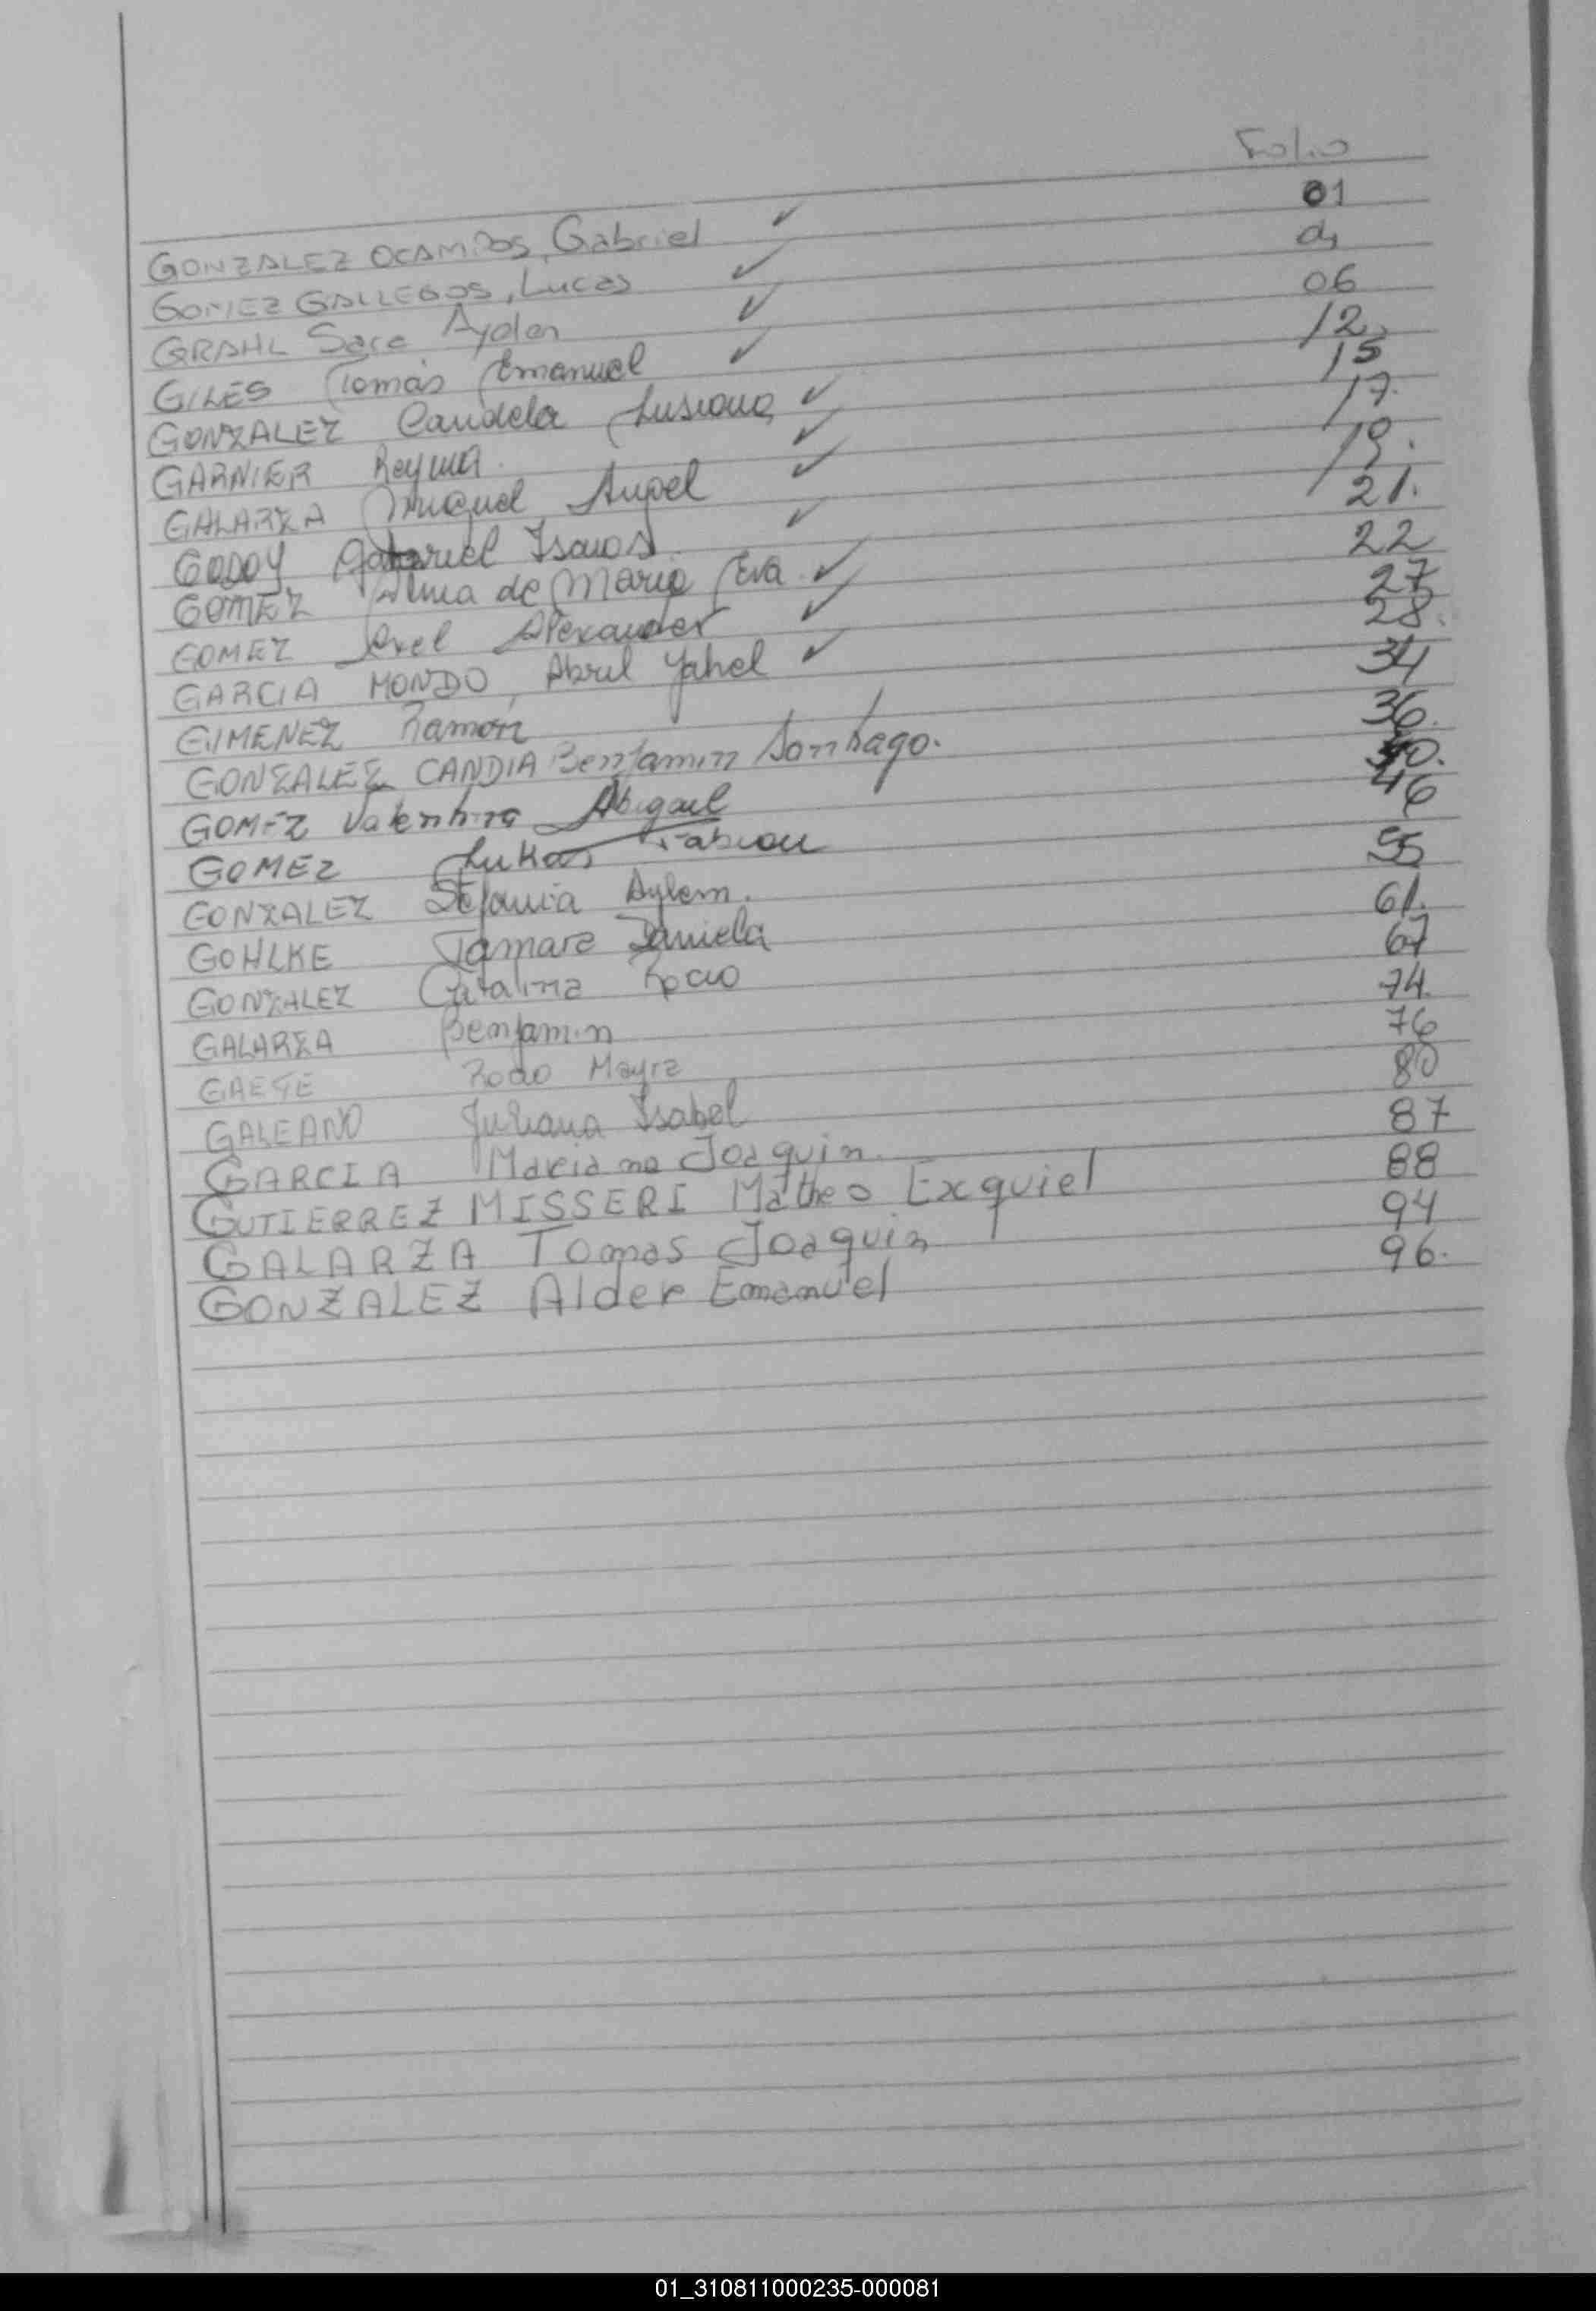 Folio
GONZALEZ OCAMPOS, Gabriel ✓ 01
GOMEZ GALLEGOS, Lucas ✓
GRAHL Sara Aylen ✓ 06
GILES Tomás Emanuel ✓ 12
GONZALEZ Candela Lusiana ✓ 15
GARNIER Reyna ✓ 17.
GALARZA Miguel Angel ✓ 19.
GODOY Gabriel Isaias ✓ 21.
GOMEZ Alma de Maria Eva ✓ 22
GOMEZ Axel Alexander ✓ 27
GARCIA MONDO, Abril Yahel ✓ 28.
GIMENEZ Ramón 34
GONZALEZ CANDIA Benjamin Santiago. 36.
GOMEZ Valentina Abigail 40.
GOMEZ Lukas Fabian 46
GONZALEZ Stefania Aylem. 55
GOHLKE Tamara Daniela 61.
GONZALEZ Catalina Rocio 67
GALARZA Benjamin 74.
GAETE Rocio Mayra 76
GALEANO Juliana Isabel 80
GARCIA Mariano Joaquin. 87
GUTIERREZ MISSERI Matheo Exequiel 88
GALARZA Tomas Joaquin 94
GONZALEZ Alder Emanuel 96.
01_310811000235-000081